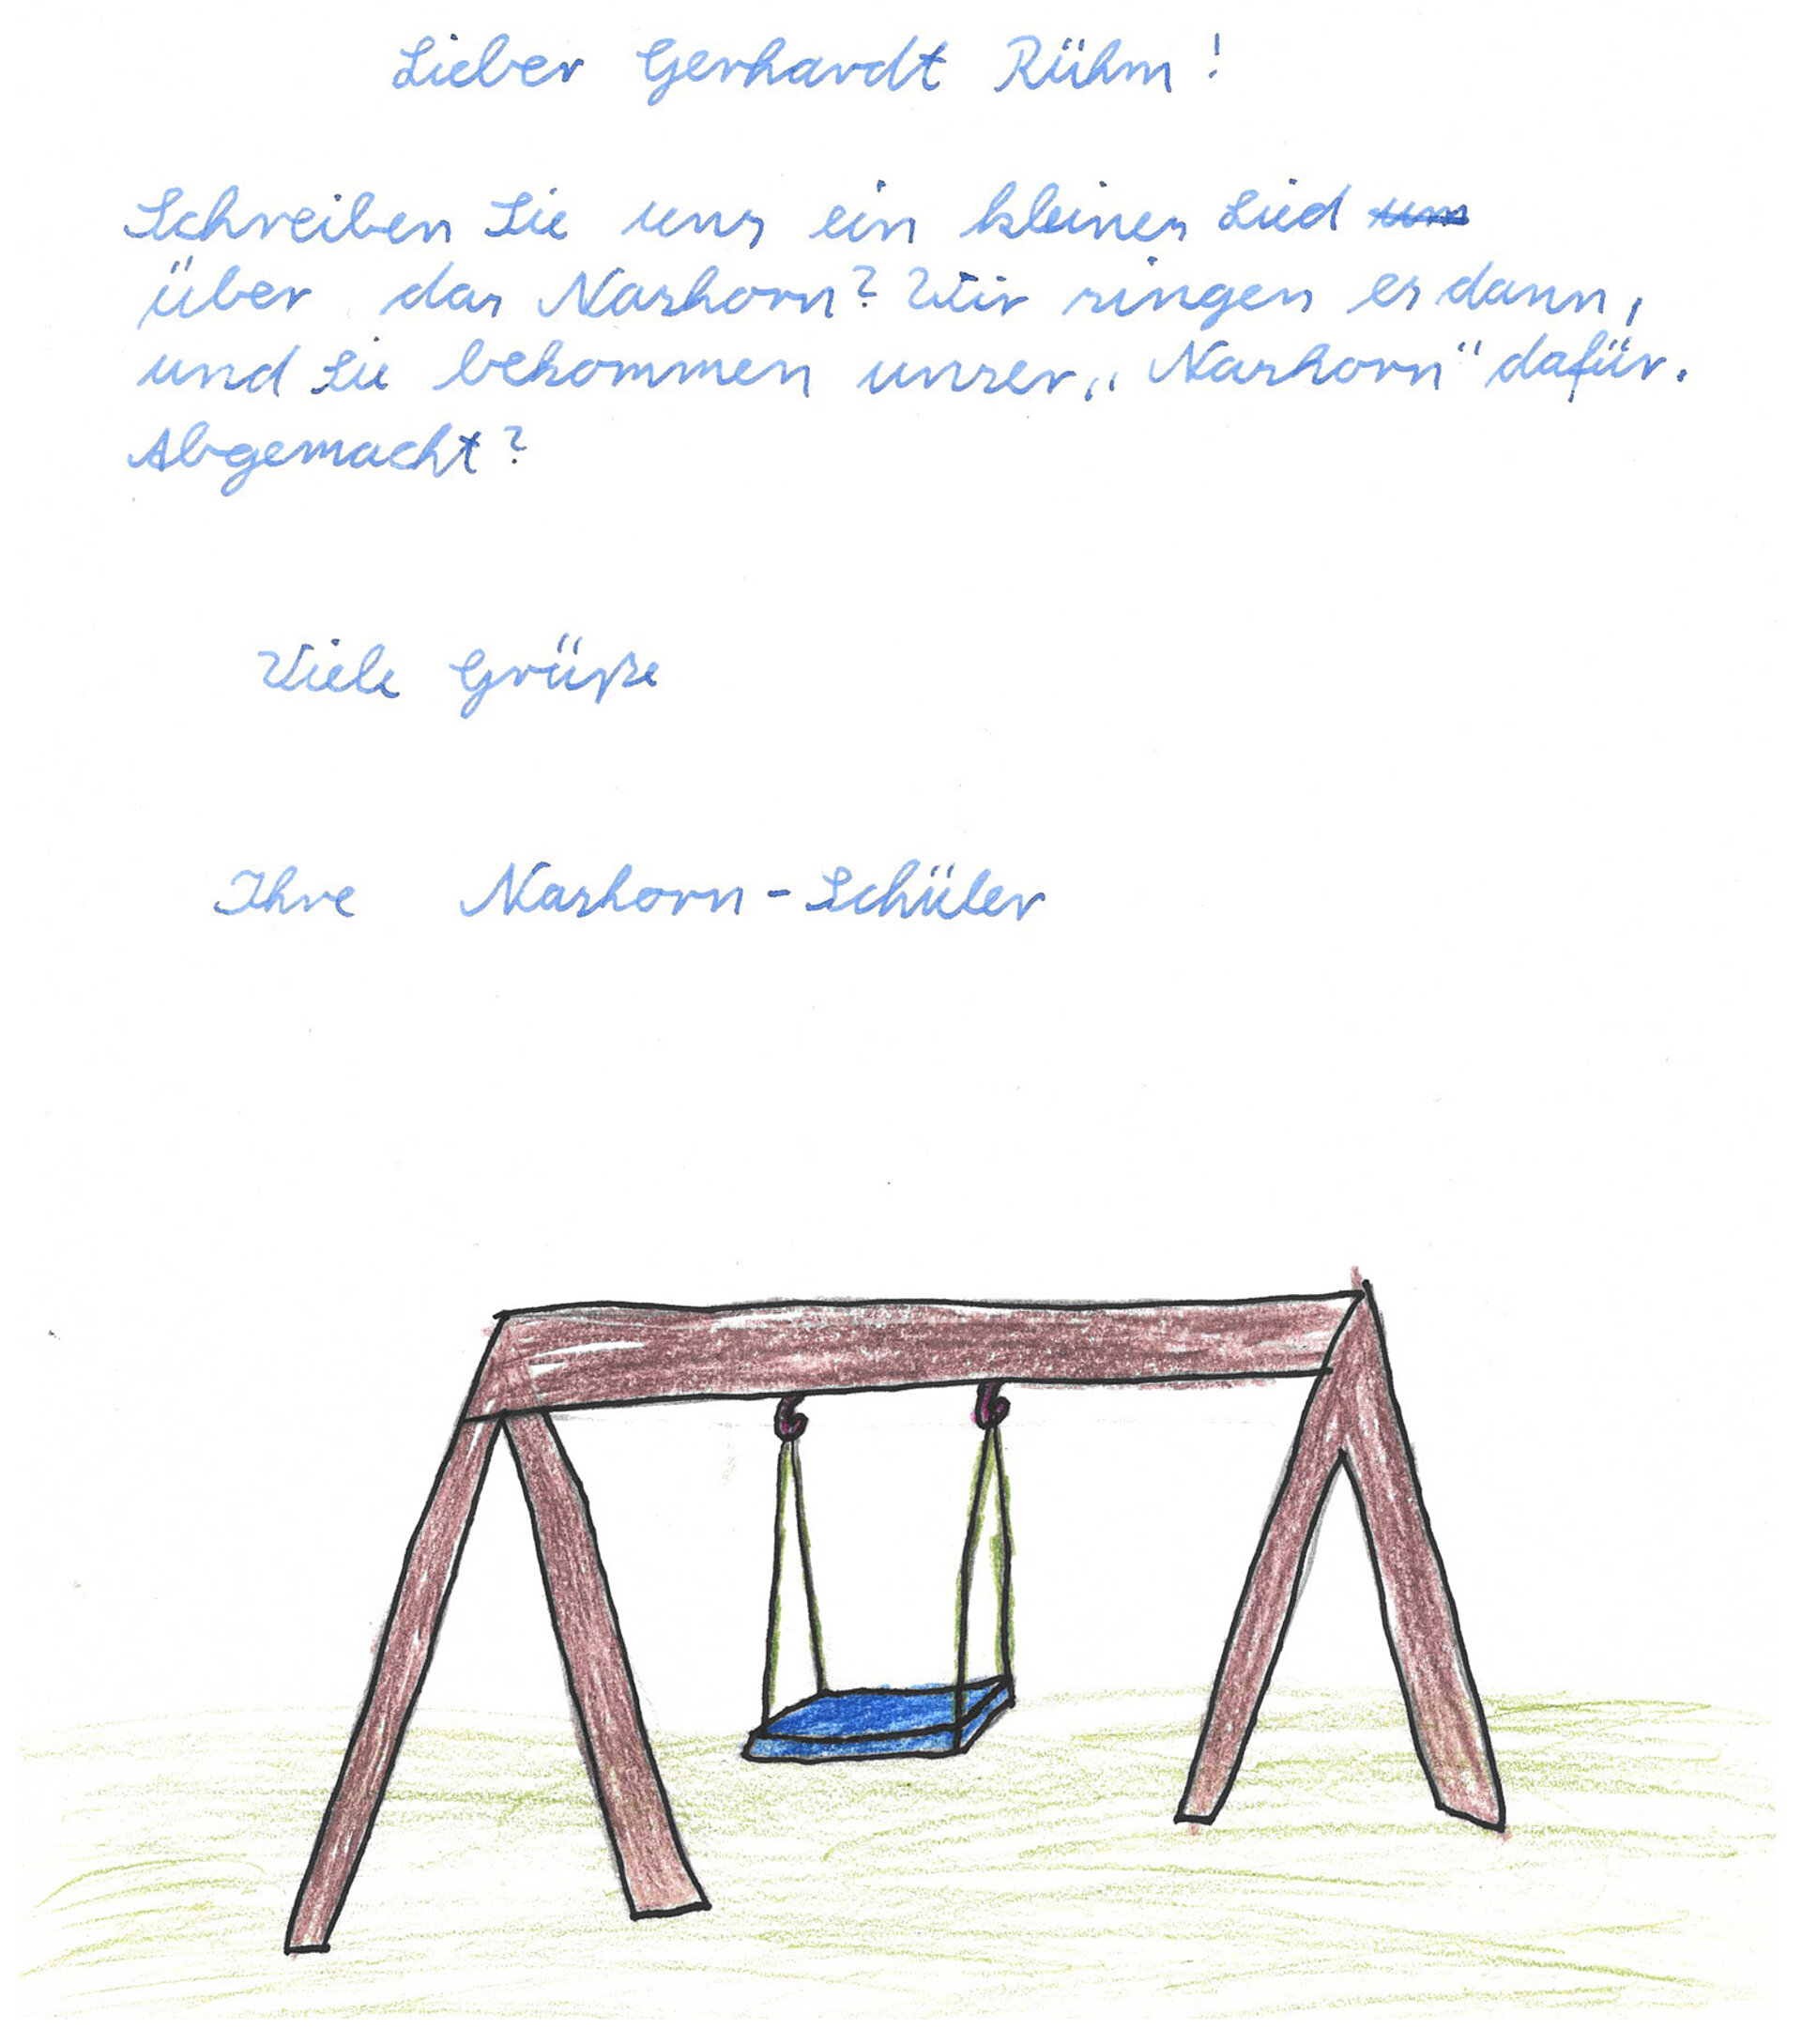 Lieber Gerhardt Rühm!
Schreiben Sie uns ein kleines Lied um
über das Nashorn? Wir singen es dann,
und Sie bekommen unser „Nashorn" dafür.
Abgemacht?
Viele Grüße
Ihre Nashorn-Schüler